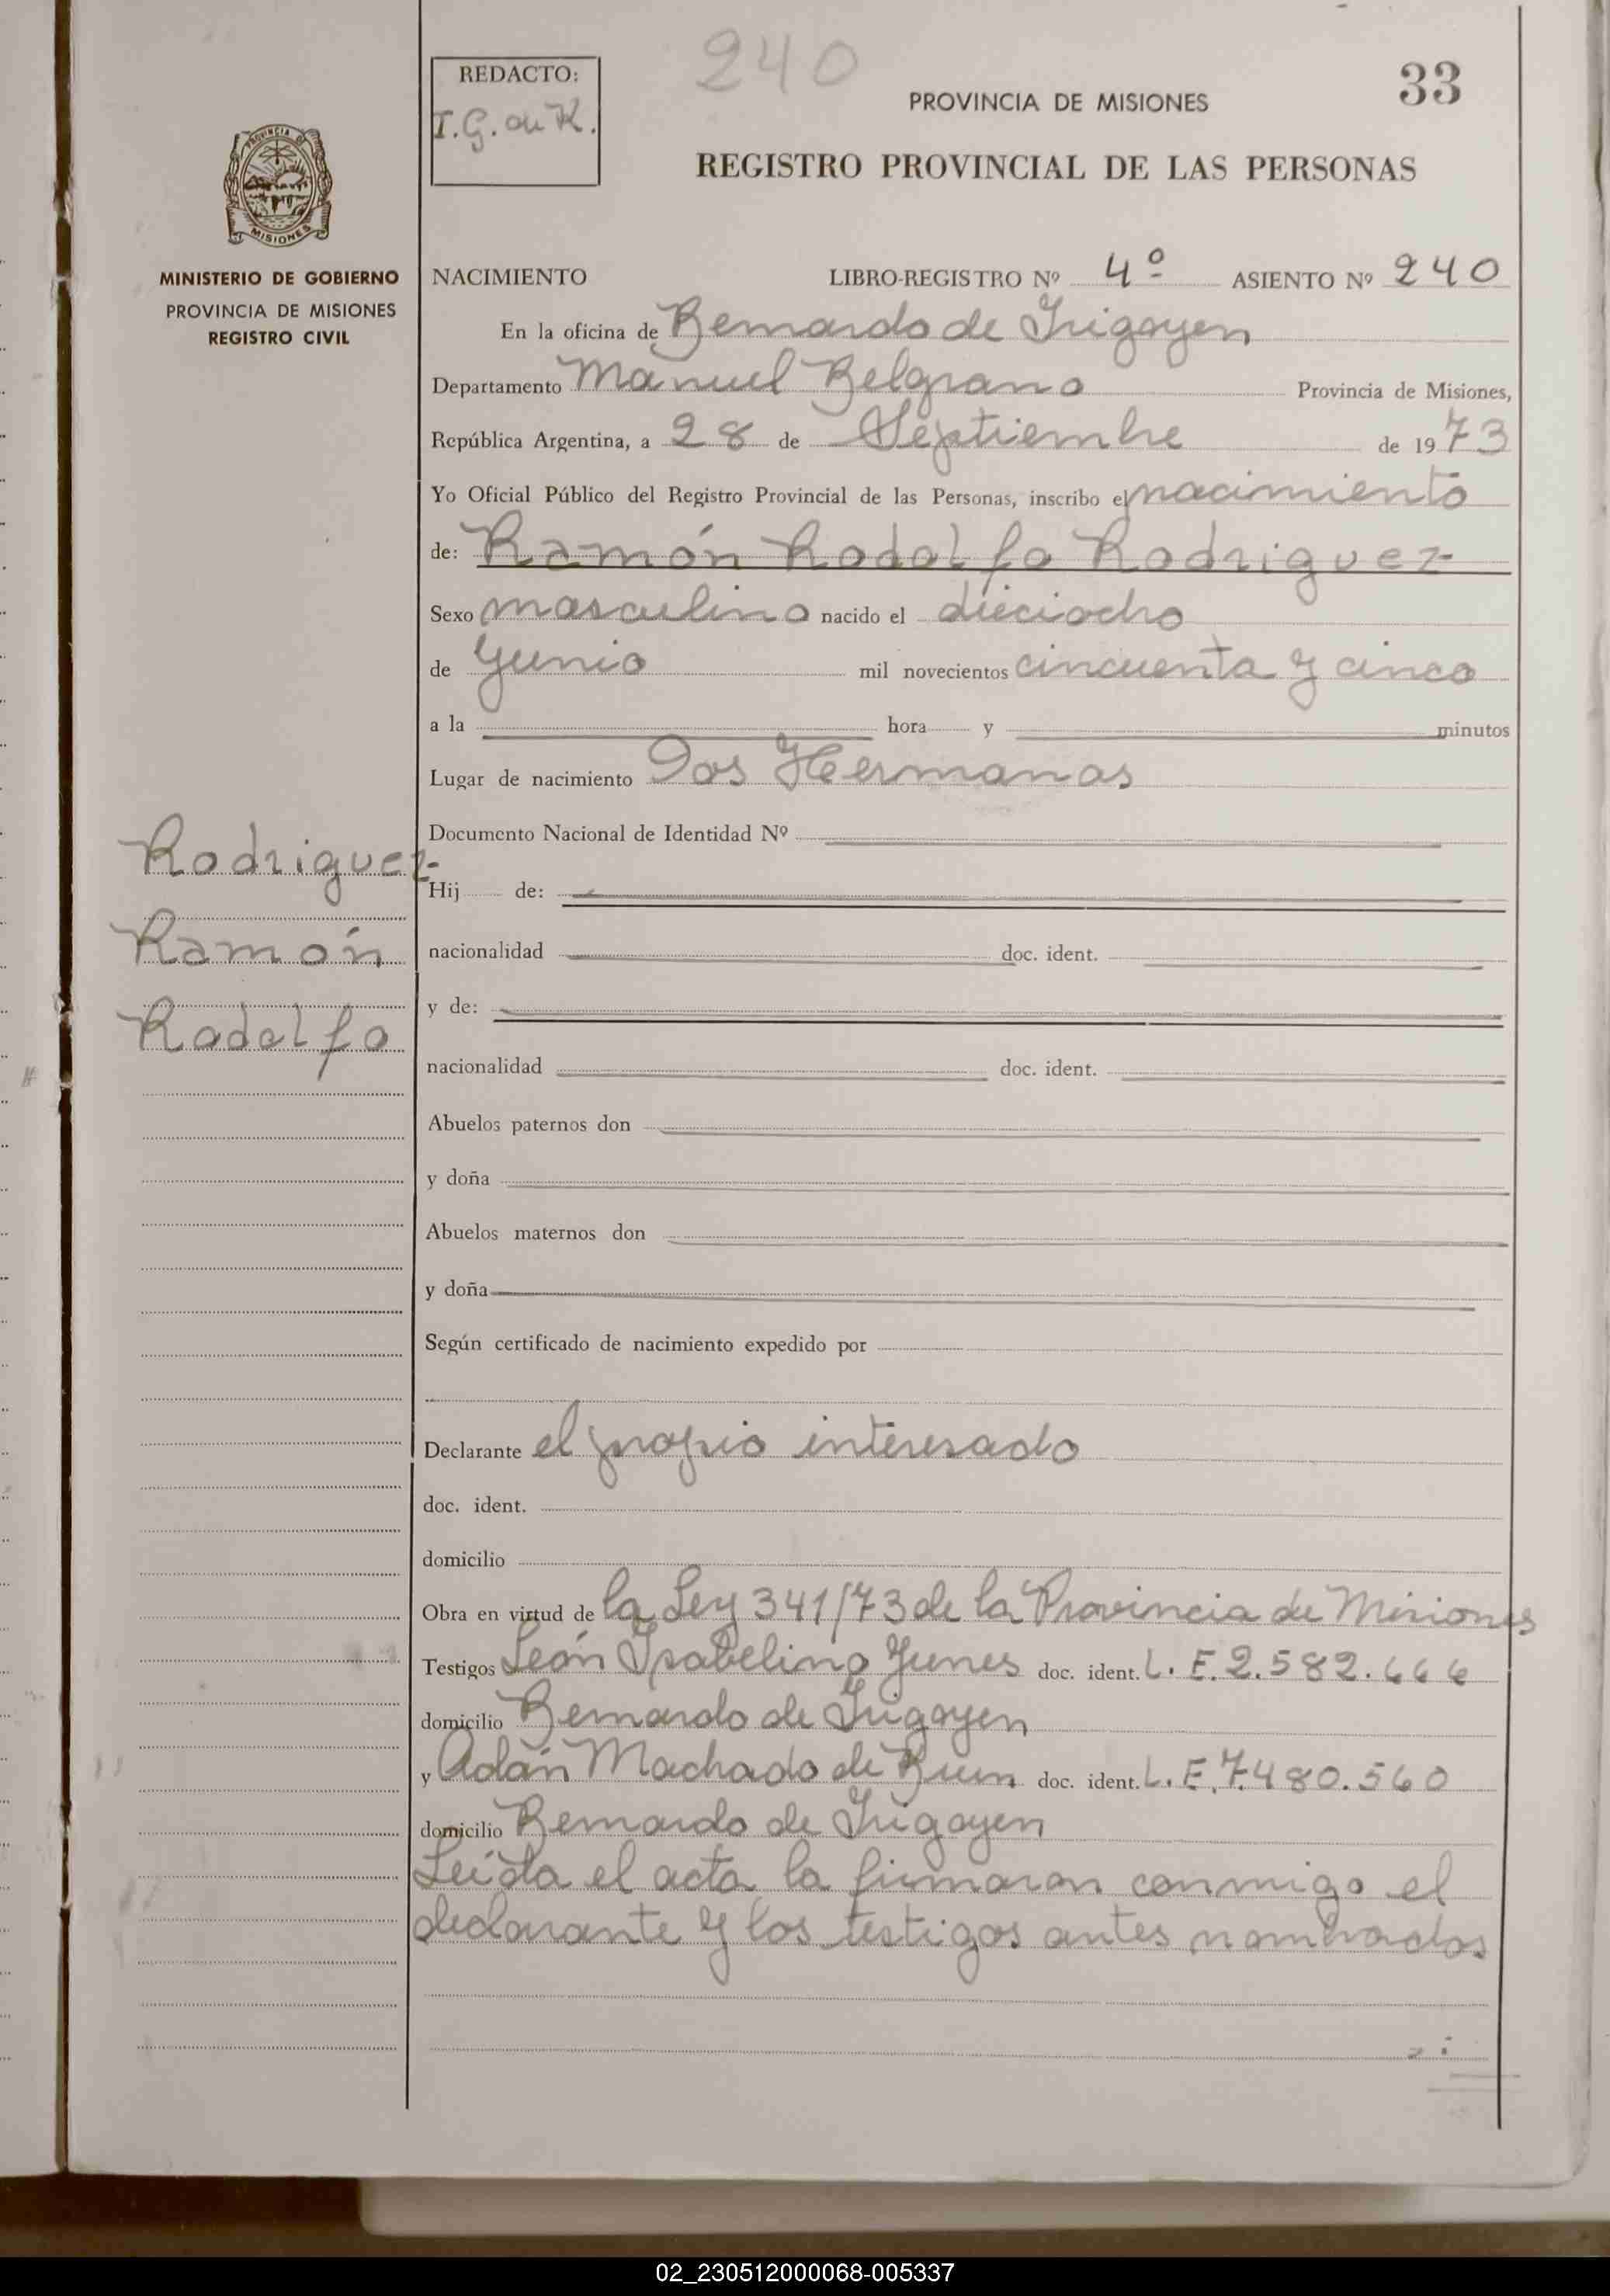 240
REDACTO:
I. G. de K.
33
PROVINCIA DE MISIONES
REGISTRO PROVINCIAL DE LAS PERSONAS
PROVINCIA DE
MISIONES
MINISTERIO DE GOBIERNO
PROVINCIA DE MISIONES
REGISTRO CIVIL
NACIMIENTO LIBRO-REGISTRO Nº 4º ASIENTO Nº 240
En la oficina de Bernardo de Irigoyen
Departamento Manuel Belgrano Provincia de Misiones,
República Argentina, a 28 de Septiembre de 1973
Yo Oficial Público del Registro Provincial de las Personas, inscribo el nacimiento
de: Ramón Rodolfo Rodriguez
Sexo masculino nacido el dieciocho
de Junio mil novecientos cincuenta y cinco
a la hora y minutos
Lugar de nacimiento Dos Hermanas
Documento Nacional de Identidad Nº
Rodriguez
Hij de:
Ramón
nacionalidad doc. ident.
y de:
Rodolfo
nacionalidad doc. ident.
Abuelos paternos don
y doña
Abuelos maternos don
y doña
Según certificado de nacimiento expedido por
Declarante el propio interesado
doc. ident.
domicilio
Obra en virtud de la Ley 341/73 de la Provincia de Misiones
Testigos León Ysabelino Yunes doc. ident. L. E. 2.582.666
domicilio Bernardo de Irigoyen
y Adán Machado de doc. ident. L. E. 7.480.560
domicilio Bernardo de Irigoyen
Leída el acta la firmaron conmigo el
declarante y los testigos antes nombrados
02_230512000068-005337